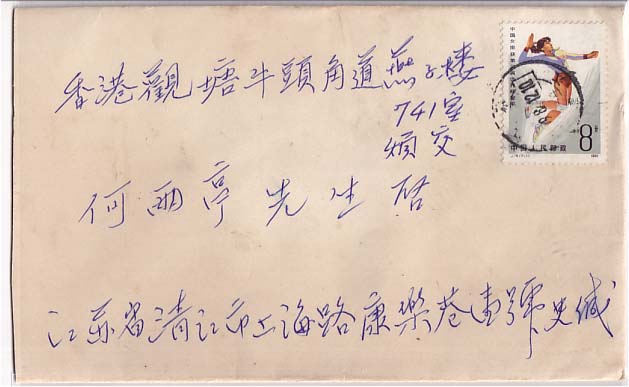 香港觀塘牛頭角道燕子楼
741室
煩交
何雨亭先生啓
江苏省清江市上海路康樂巷壹號史缄
8分
中国人民邮政